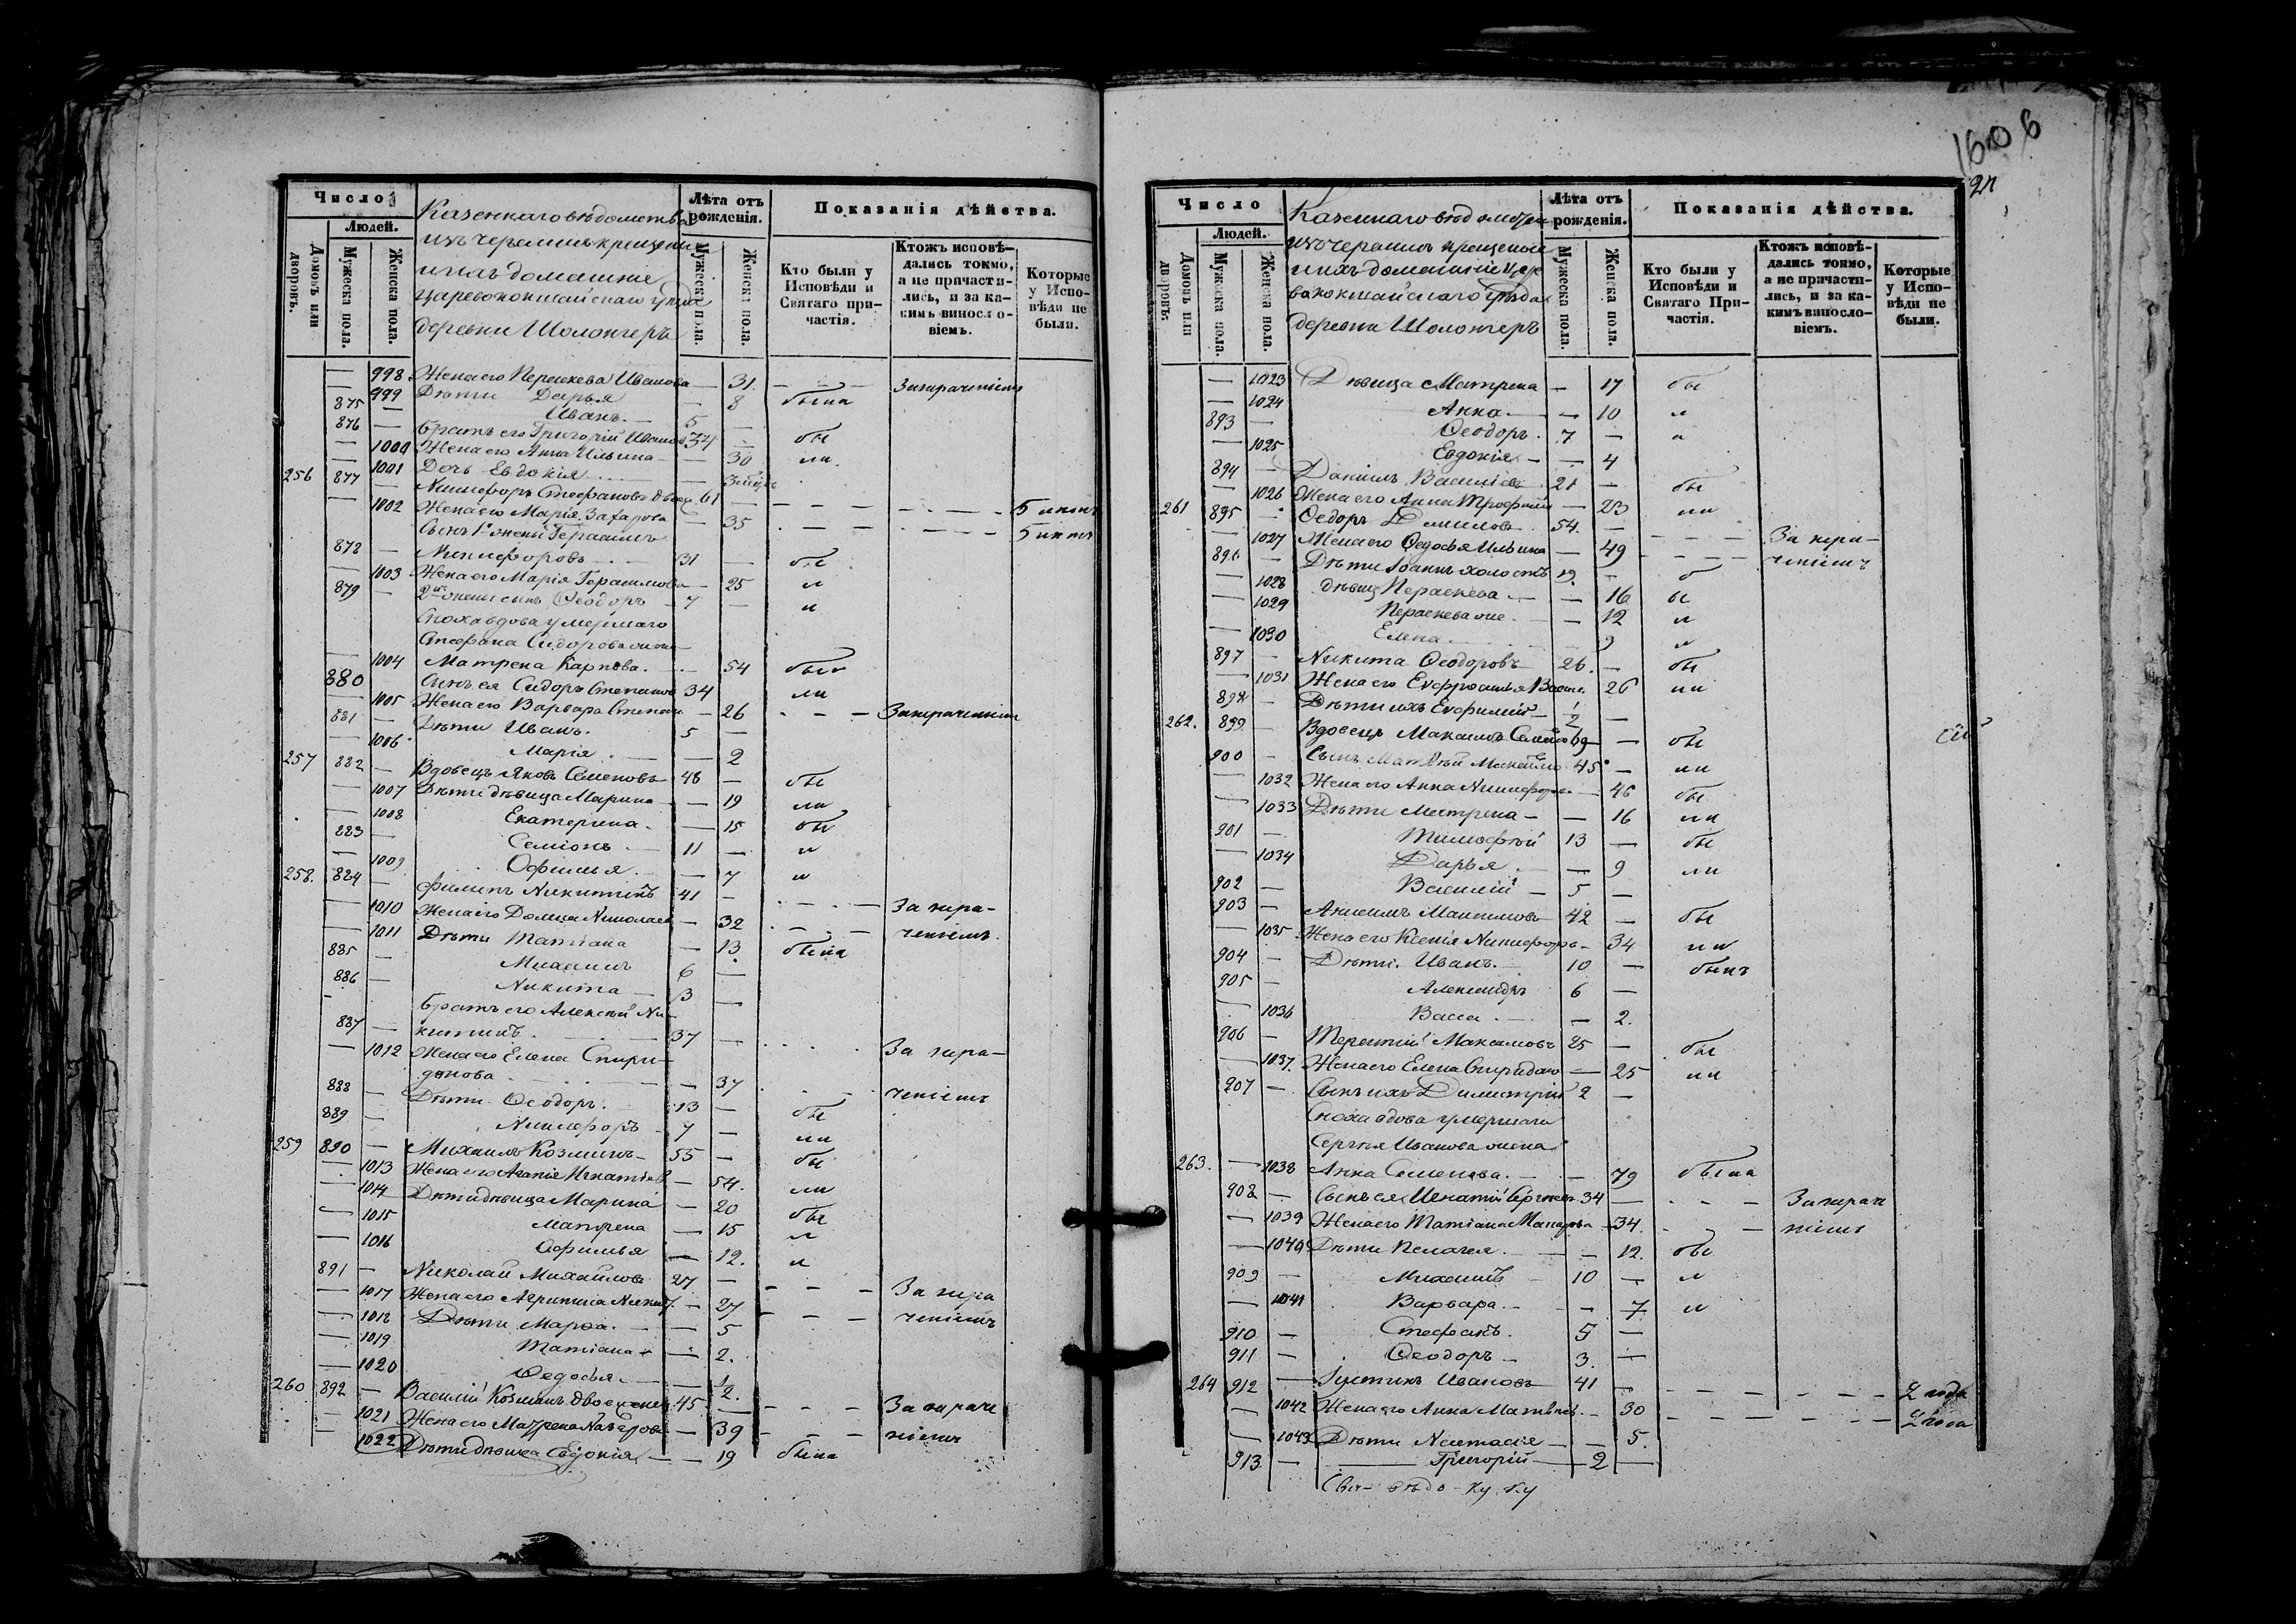 Число
Казеннаго вѣдомства
изъ черемисъ крещеныя
и ихъ домашніе
Царевококшайскаго уѣзда
деревни Шолонгеръ
Лѣта отъ рожденія.
Показанія дѣйства.
Людей.
Домовъ или дворовъ.
Мужеска пола.
Женска пола.
Мужеска пола.
Женска пола.
Кто были у Исповѣди и Святаго причастія.
Ктожъ исповѣдались токмо, а не причастились, и за какимъ винословіемъ.
Которые у Исповѣди не были.
— 998 Жена его Параскева Иванова — 31. — — —
— 999 Дѣти Дарья — 8 была
875 — Иванъ. — 5 —
876 — Братъ его Григорій Иванов 34 — бы
— 1000 Жена его Анна Ильина — 30 ли
— 1001 Дочь Евдокія —
256 877 — Никифоръ Стефановъ двоеж. 61 — — — 5 лѣтъ
— 1002 Жена его Марія Захарова — 35 — — 5 лѣтъ
Сынъ 1й жены Герасимъ
878 — Никифоровъ — 31 — бы
— 1003 Жена его Марія Герасимова — 25 и
879 — 2й жены сынъ Ѳеодоръ — 7 — и
Сноха вдова умершаго
Стефана Сидорова жена
— 1004 Матрена Карпова. — 54 были
880 Сынъ ея Сидоръ Степанов 34 ли
— 1005 Жена его Варвара Степан — 26 — — —
881 — Дѣти Иванъ. 5 —
— 1006 Марія — 2
257 882 — Вдовецъ Яковъ Семеновъ 48 — бы
— 1007 Дѣти дѣвица Марина — 19 ли
— 1008 Екатерина — 15 бы
883 — Семіонъ — 11 — и
— 1009 Ѳфимья — 7 и
258. 884 — Филипъ Никитинъ 41 — — За нера-
— 1010 Жена его Домна Николаев — 32 — — ченіемъ.
— 1011 Дѣти Татіана — 13 была
885 — Михаилъ 6 —
886 — Никита 3 —
Братъ его Алексѣй Ни-
887 — китинъ 37 — За нера-
— 1012 Жена его Елена Спири-
донова — 37 ченіемъ
888 — Дѣти Ѳеодоръ. 13 — бы
889 — Никифоръ 7 — ли
259 890 — Михаилъ Козминъ 55 — бы
— 1013 Жена его Агаѳія Игнатіев — 54. ли
— 1014 Дѣти дѣвица Марина — 20 бы
— 1015 Матрена — 15 и
— 1016 Офимья — 12. и
891 — Николай Михайловъ 27 — — — За нера
— 1017 Жена его Агрипина Никит. — 27 — — ченіемъ
— 1018 Дѣти Марѳа. — 5
— 1019 Татіана — 2.
— 1020 Ѳедосья — 1/2.
260 892 — Василій Козминъ двоеженец 45 — — — За нераче
— 1021 Жена его Матрена Назарова — 39 — — ніемъ
1022 Дѣти дѣвица Евдокія — 19 была
1606
Число
Казеннаго вѣдомства
изъ черемисъ крещеныя
и ихъ домашніе Царе
вококшайскаго Уѣзда
деревни Шолонгеръ
Лѣта отъ рожденія.
Показанія дѣйства.
Людей.
Домовъ или дворовъ.
Мужеска пола.
Женска пола.
Мужеска пола.
Женска пола.
Кто были у Исповѣди и Святаго Причастія.
Ктожъ исповѣдались токмо, а не причастились, и за какимъ винословіемъ.
Которые у Исповѣди не были.
— 1023 Дѣвица Матрена — 17 бы
— 1024 Анна — 10 и
893 — Ѳеодоръ. 7 — и
— 1025 Евдокія — 4
894 — Даніилъ Василіевъ 21 — бы
— 1026 Жена его Анна Трофимов — 23 ли
261 895 — Ѳедоръ Даниловъ 54. — — — За нера-
— 1027 Жена его Ѳедосья Ильина — 49 — — ченіемъ
896 — Дѣти Іоаннъ холостъ 19. — б
— 1028 дѣвиц Параскева — 16 ы
— 1029 Параскева же — 12 и
— 1030 Елена — 9 и
897 — Никита Ѳеодоровъ 26. — бы
— 1031 Жена его Евфросинья Васил. 26 ли
898 — Дѣти ихъ Евфимій 1/2 —
262. 899 — Вдовецъ Максимъ Семенов 69 — бы
900 — Сынъ Матвѣй Максимо 45 — ли
— 1032 Жена его Анна Никифоров — 46 бы
— 1033 Дѣти Матрена — 16 ли
901 — Тимофей 13 — бы
— 1034 Дарья — 9 ли
902 — Василій — 5 —
903 — Анисимъ Максимовъ 42 — бы
— 1035 Жена его Ксенія Никифоров — 34 ли
904 — Дѣти. Иванъ. 10 — былъ
905 — Александръ 6 —
— 1036 Васса — 2.
906 — Терентій Максимовъ 25 — бы
— 1037. Жена его Елена Спиридоно — 25 ли
907 — Сынъ ихъ Димитрій 2 —
Сноха вдова умершаго
Сергѣя Иванова жена
263. — 1038 Анна Семенова. — 79 была
908 — Сынъ ея Игнатій Сергѣев 34 — — — За нераче
— 1039 Жена его Татіана Макарова — 34. — — ніемъ
— 1040 Дѣти Пелагея. — 12. бы
909 — Михаилъ 10 — и
— 1041 Варвара. — 7 и
910 — Стефанъ. 5 —
911 — Ѳеодоръ 3. —
264 912 — Іустинъ Ивановъ 41 — — — 2 года
— 1042 Жена его Анна Матвѣев. — 30 — — 2 года
— 1043 Дѣти Настасія — 5.
913 — Григорій 2 —